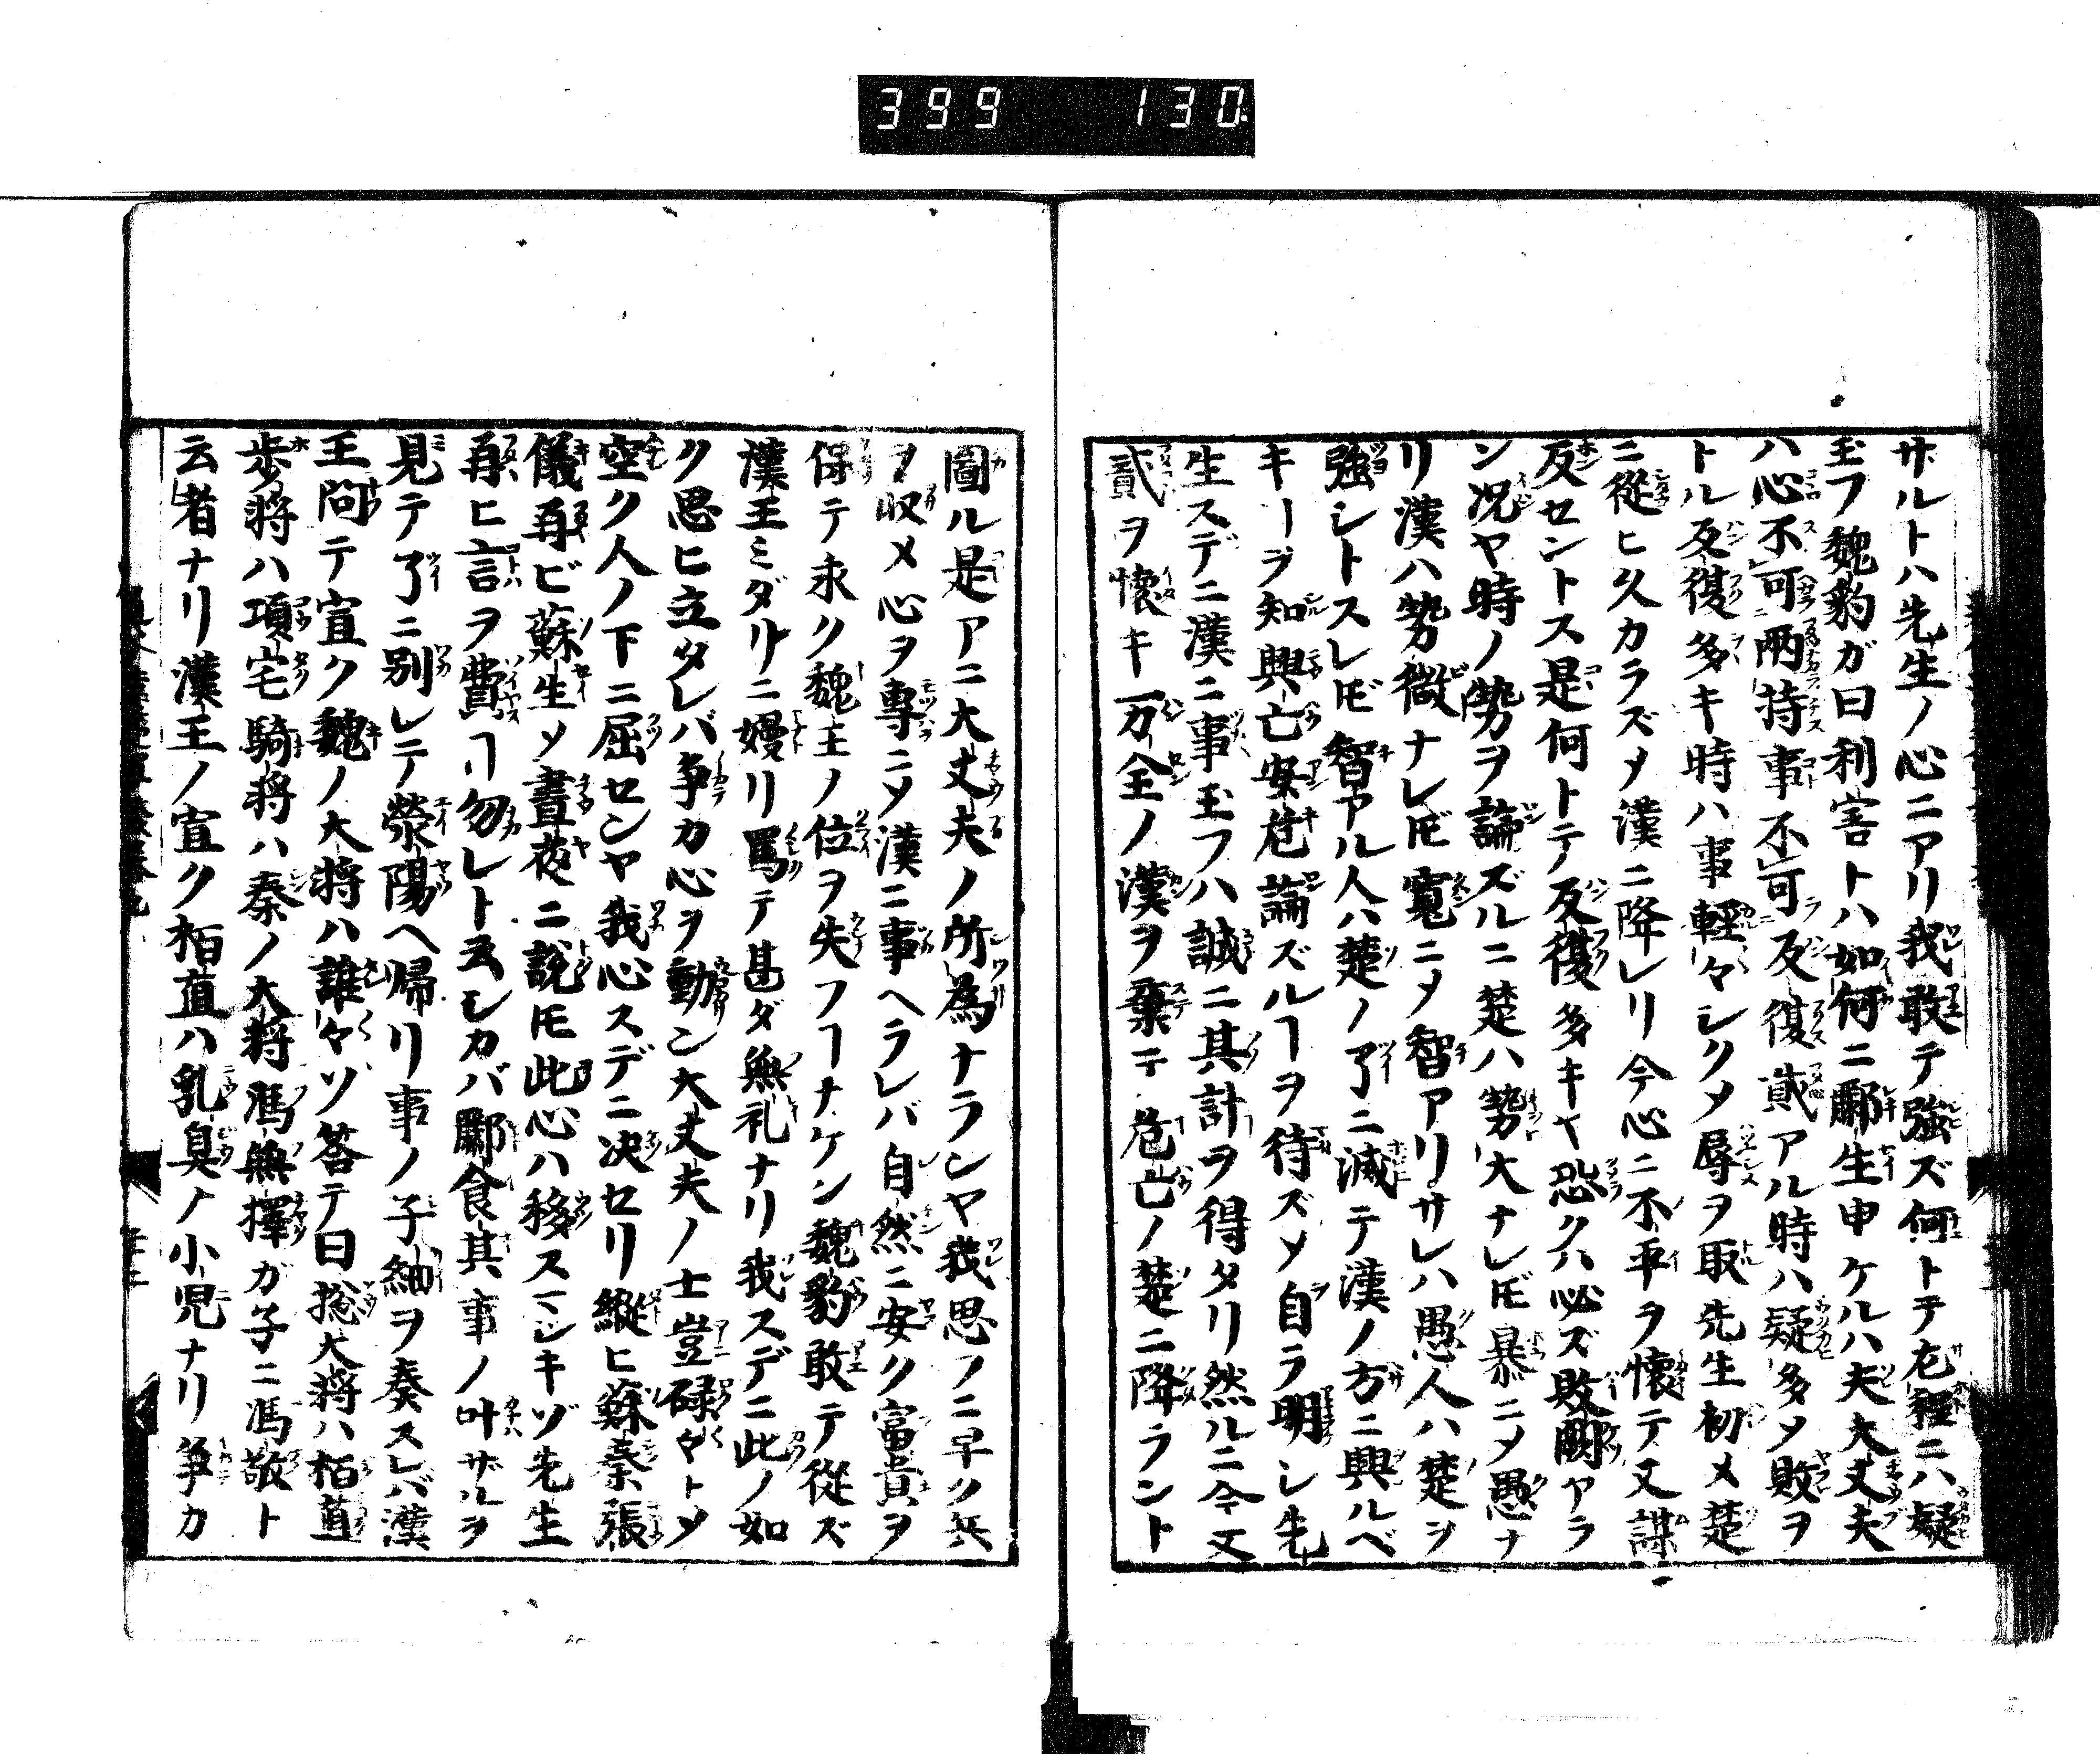 399 130
サルトハ先生ノ心ニアリ我敢テ強ズ何トテ左程ニハ疑
玉フ魏豹ガ曰利害トハ如何ニ酈生申ケルハ夫大丈夫
ハ心不可両持事不可反復貳アル時ハ疑多ソ敗ヲ
トル反復多キ時ハ事軽々シクメ辱ヲ取先生初メ楚
ニ從ヒ久カラズメ漢ニ降レリ今心ニ不平ヲ懐テ又謀
反セントス是何トテ反復多キヤ恐クハ必ズ敗闕アラ
ン况ヤ時ノ勢ヲ論ズルニ楚ハ勢大ナレ𪜈暴ニメ愚ナ
リ漢ハ勢微ナレ𪜈寛ニメ智アリサレハ愚人ハ楚ヲ
強シトスレ𪜈智アル人ハ楚ノ了ニ滅テ漢ノ方ニ興ルベ
キヿヲ知興亡安危論ズルヿヲ待ズメ自ラ明シ先
生スデニ漢ニ事玉フハ誠ニ其計ヲ得タリ然ルニ今又
貳ヲ懐キ万全ノ漢ヲ棄テ危亡ノ楚ニ降ラント
圖ル是アニ大丈夫ノ所為ナランヤ我思フニ早ク兵
ヲ収メ心ヲ專ニメ漢ニ事ヘラレバ自然ニ安ク富貴ヲ
保テ永ク魏王ノ位ヲ失フヿナケン魏豹敢テ從ズ
漢王ミダリニ嫚リ罵テ甚ダ無礼ナリ我スデニ此ノ如
ク思ヒ立タレバ争カ心ヲ動ン大丈夫ノ士豈碌々トメ
空ク人ノ下ニ屈センヤ我心スデニ决セリ縱ヒ蘇秦張
儀再ビ蘇生ソ晝夜ニ説𪜈此心ハ移スマシキゾ先生
再ヒ言ヲ費ヿ勿レト云シカバ酈食其事ノ叶ザルヲ
見テ了ニ別レテ滎陽ヘ帰リ事ノ子細ヲ奏スレバ漢
王問テ宣ク魏ノ大将ハ誰々ソ答テ曰惣大将ハ栢直
歩将ハ項宅騎将ハ秦ノ大将馮無擇ガ子ニ馮敬ト
云者ナリ漢王ノ宣ク栢直ハ乳臭ノ小児ナリ争カ